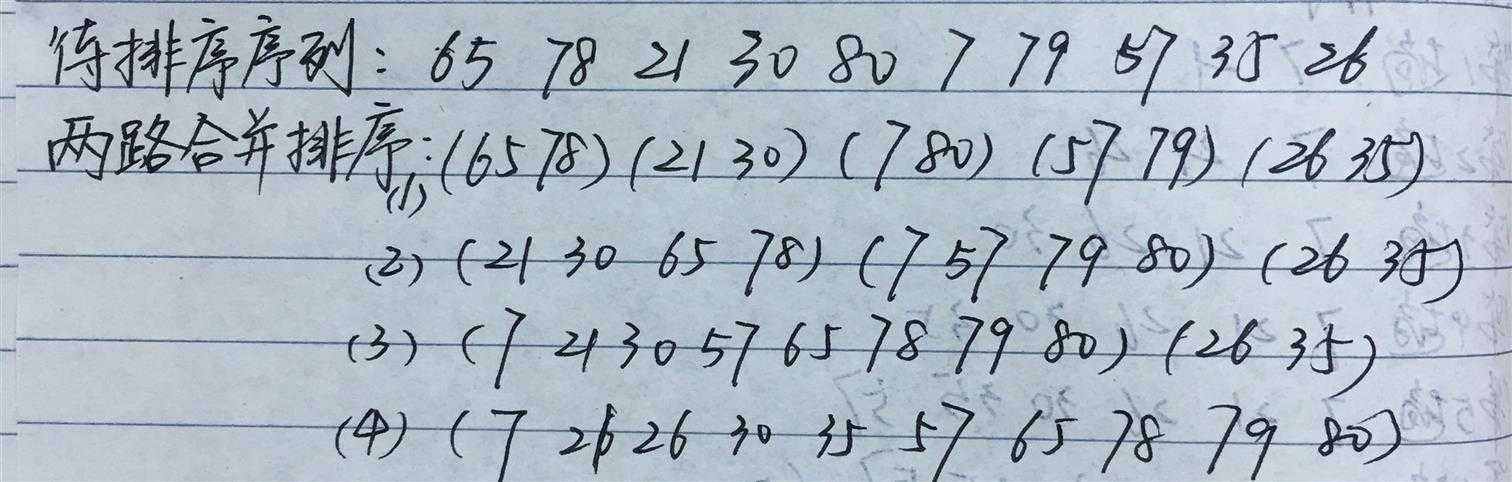 待排序序列: 65 78 21 30 80 7 79 57 35 26
两路合并排序:(1) (65 78) (21 30) (7 80) (57 79) (26 35)
(2) (21 30 65 78) (7 57 79 80) (26 35)
(3) (7 21 30 57 65 78 79 80) (26 35)
(4) (7 21 26 30 35 57 65 78 79 80)